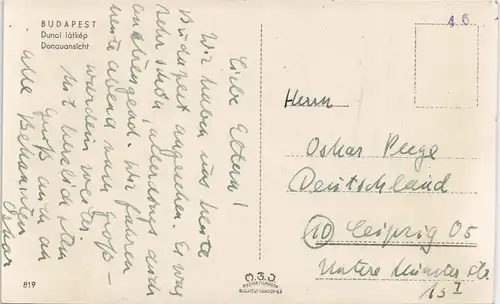 BUDAPEST
Dunai látkép
Donauansicht
4 6
Liebe Eltern!
Wir haben uns heute
Budapest angesehen. Es war
sehr schön, allerdings auch
anstrengend. Wir fahren
heute abend zum Groß-
wardein weiter.
Mit herzlichsten
Gruß auch an
alle Bekannten
Oskar
Herrn
Oskar
Deutschland
10 Leipzig O5
Untere Münster Str
15 I
819